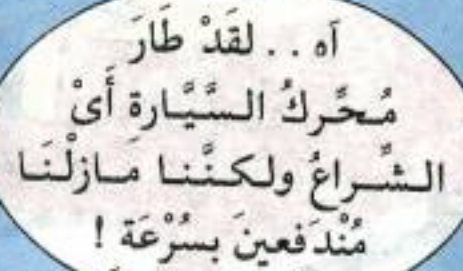 آه . . لقَدْ طَارَ
مُحَّركُ السَّيَّارة أَىْ
الشِّراعُ ولكنَّنا مَازلْنَا
مُنْدَفعينَ بسُرْعَة !